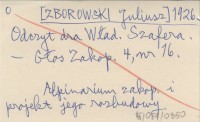 [ZBOROWSKI Juliusz] 1926.
Odczyt dra Wład. Szafera.
— Głos Zakop. 4, nr 16.
Alpinarium zakop. i
projekt jego rozbudowy.